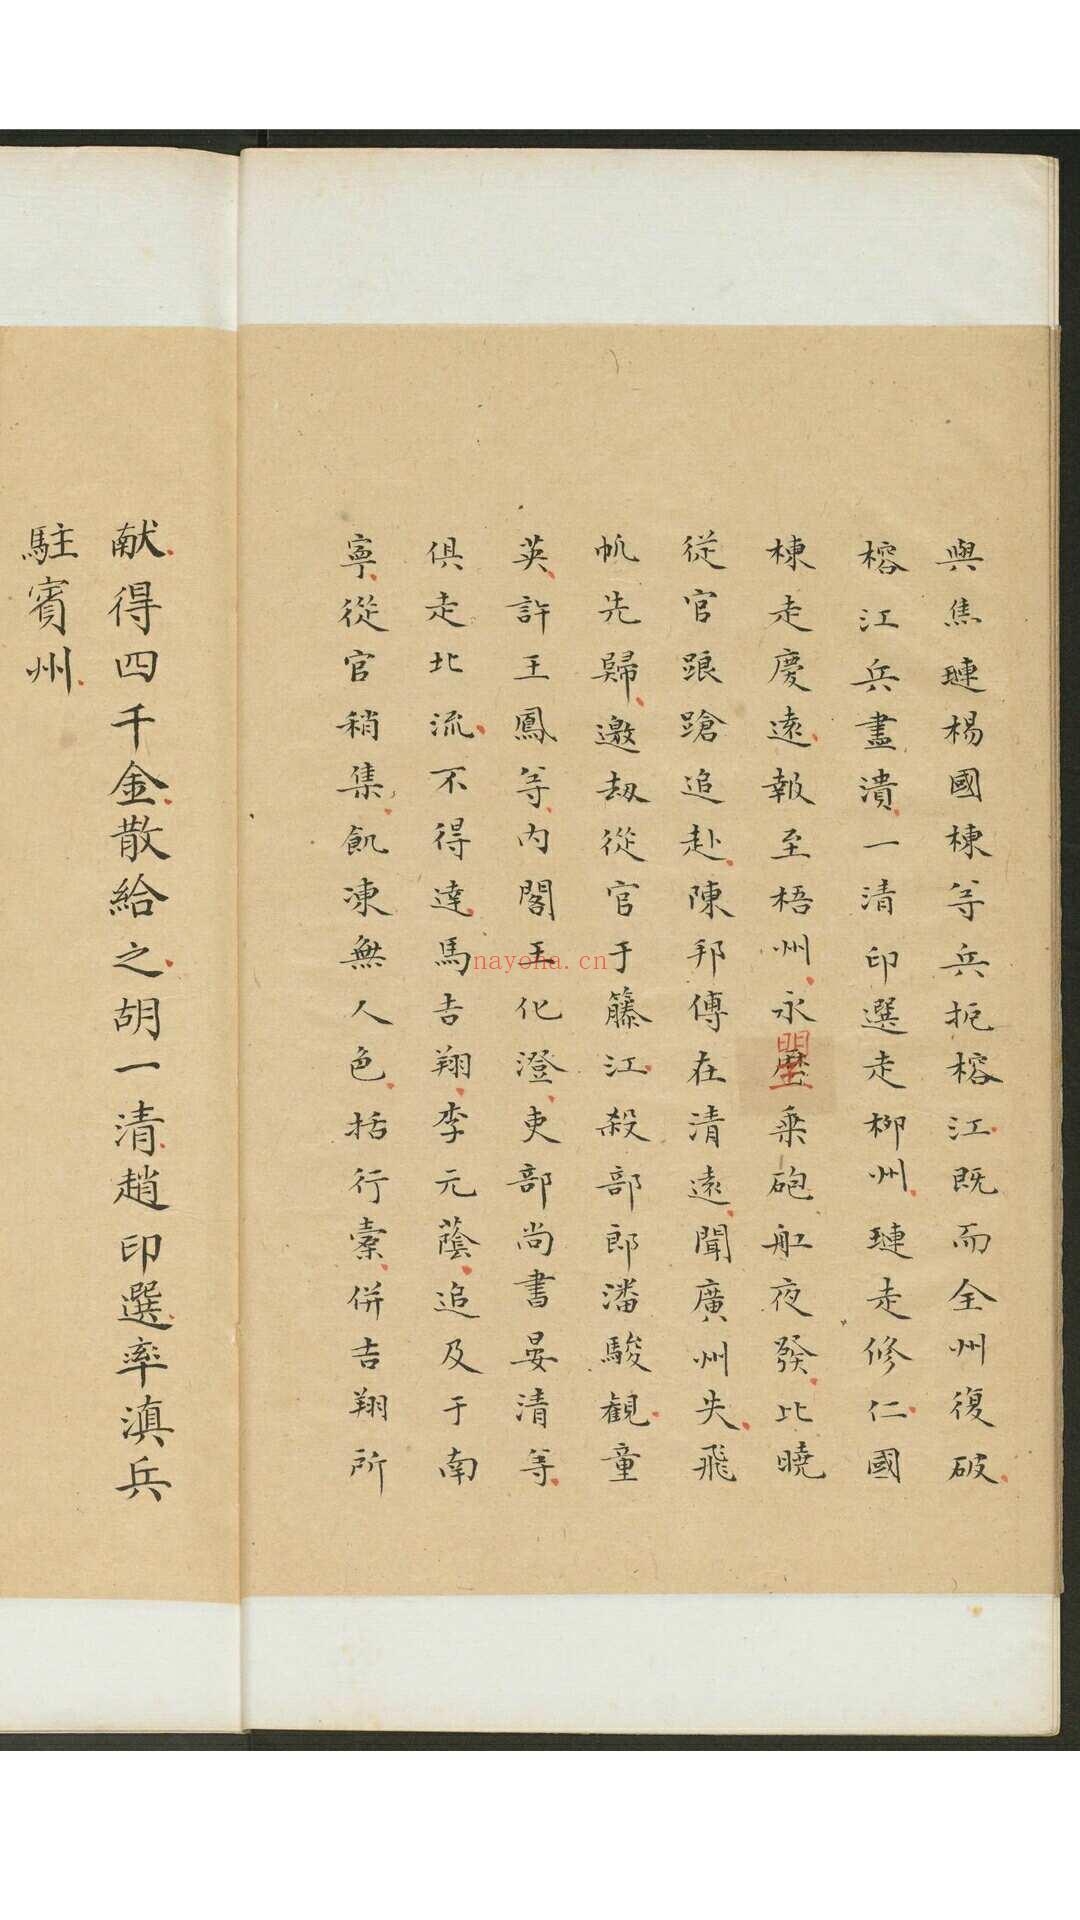 與焦璉楊國棟等兵扼榕江既而全州復破
榕江兵盡潰一清印選走柳州璉走修仁國
棟走慶遠報至梧州永曆乘砲舡夜發比曉
從官踉蹌追赴陳邦傳在清遠聞廣州失飛
帆先歸邀劫從官于籐江殺部郎潘駿觀童
英許王鳳等內閣王化澄吏部尚書晏清等
俱走北流不得達馬吉翔李元蔭追及于南
寧從官稍集飢凍無人色括行橐併吉翔所
献得四千金散給之胡一清趙印選率滇兵
駐賓州
nayona.cn